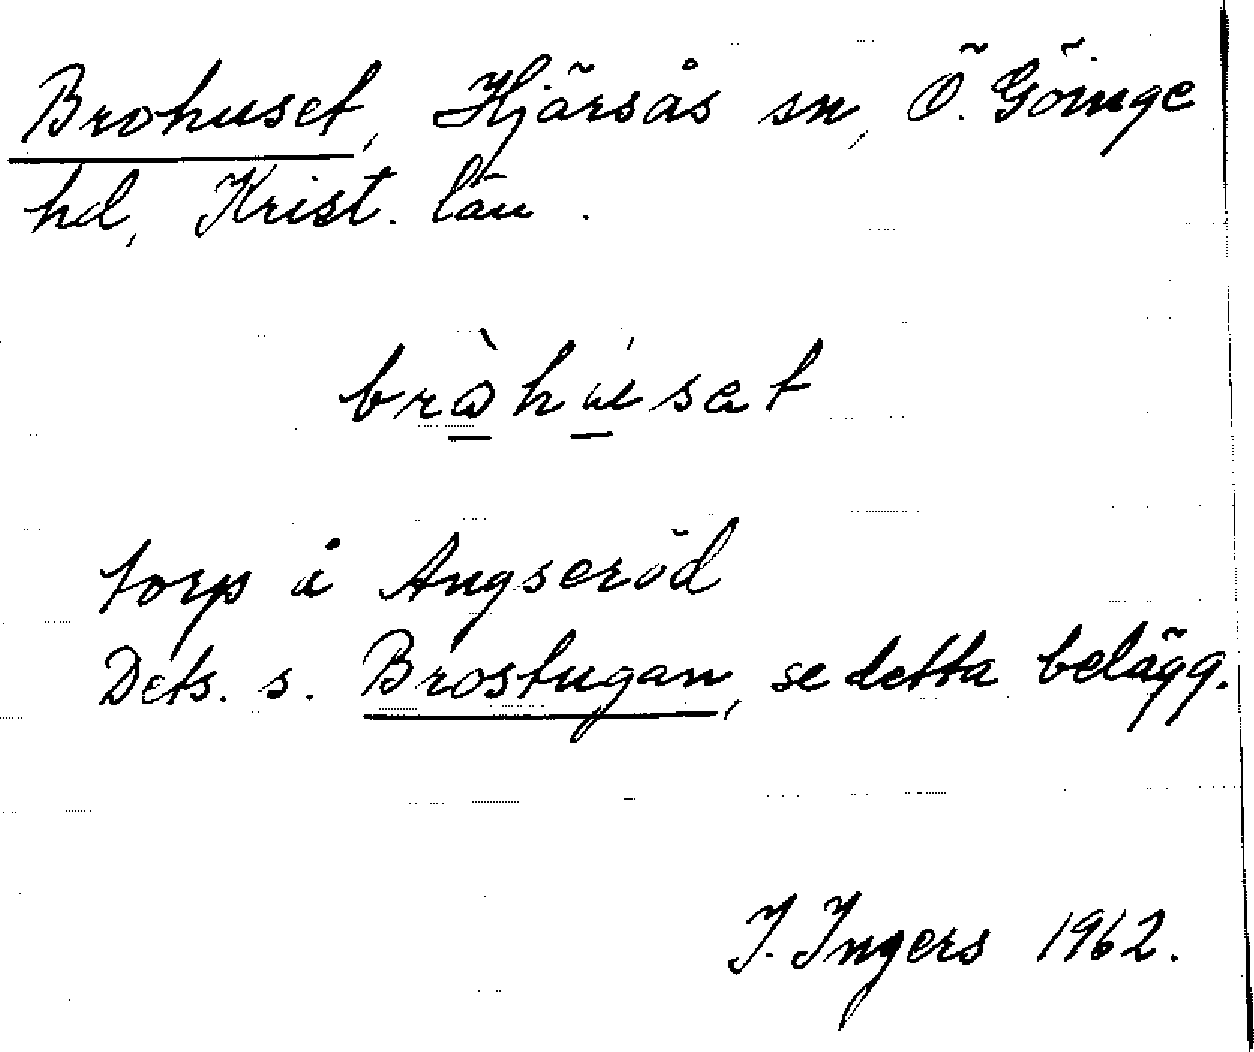 Brohuset, Hjärsås sn, Ö. Göinge
hd, Krist. län.
bròhúsat
torp å Angseröd
Dets. s. Brostugan, se detta belägg.
I. Ingers 1962.